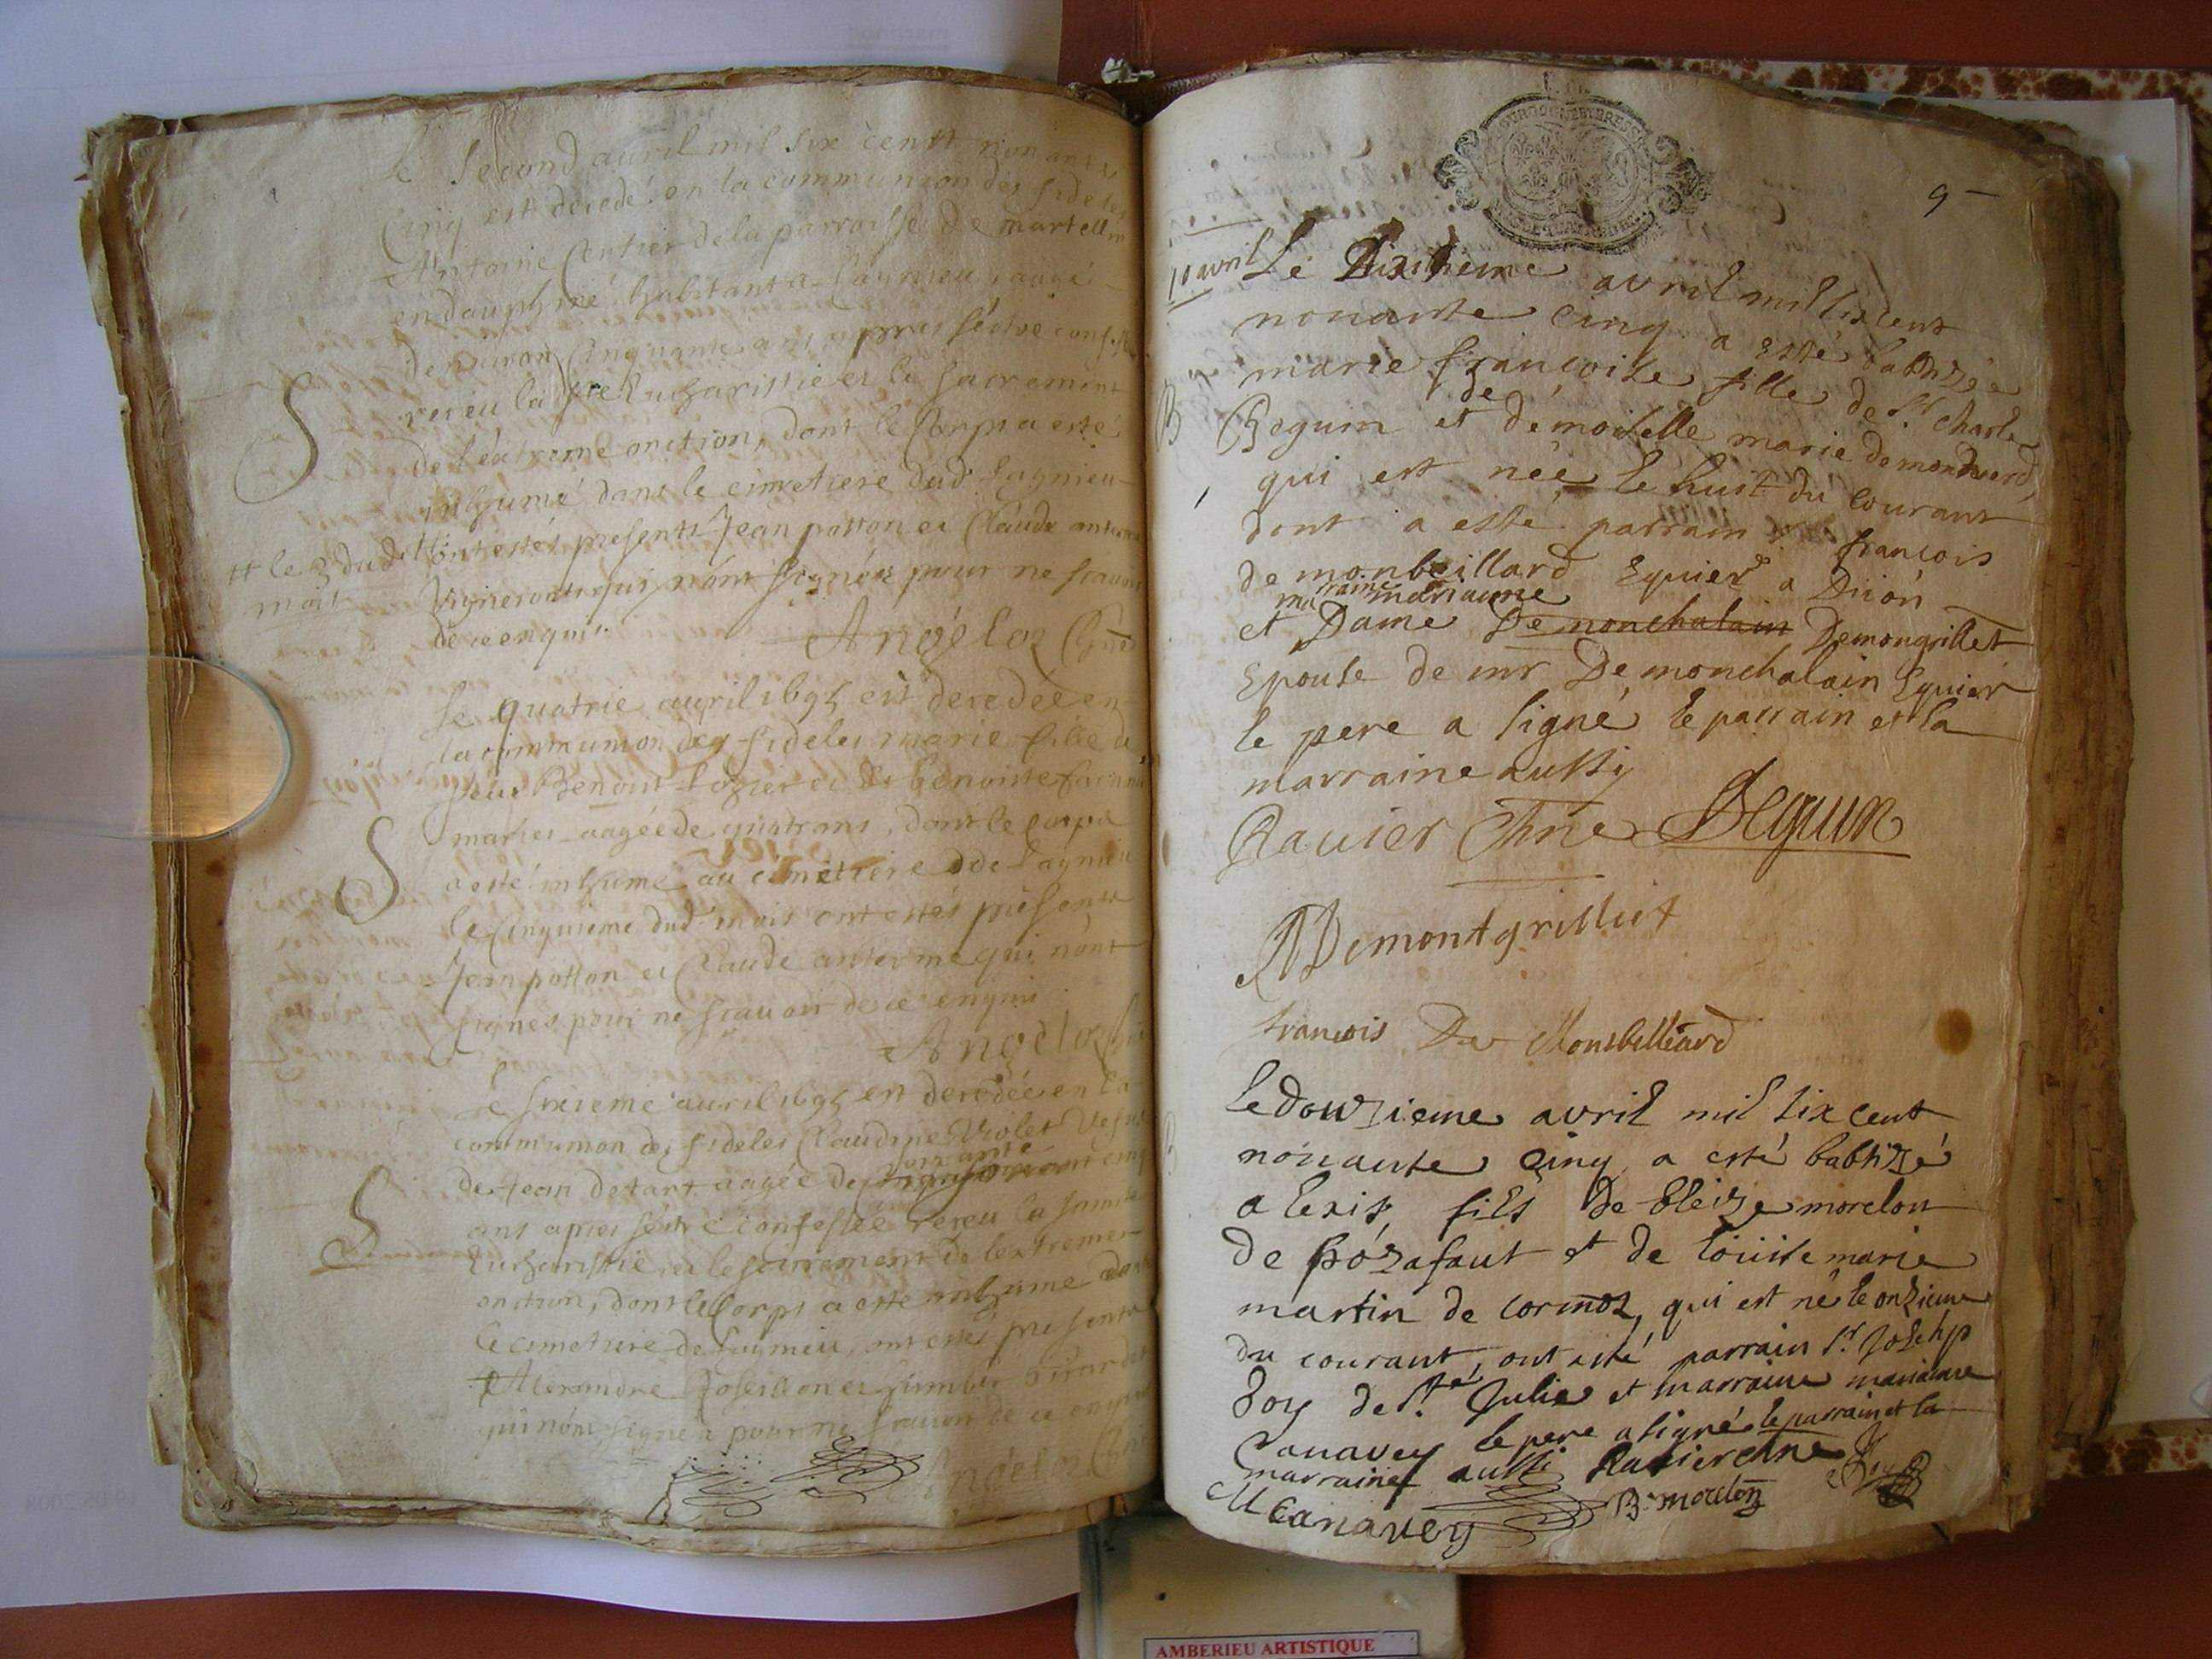 Le second avril mil six centt nonante
Cinq est decedé en la communion des fideles
Antoine de la parroisse de martellin
en dauphiné habitant a Lagnieu, aagé
denviron Cinquante ans apres séstre confessé
receu la ste Eucharistie et le sacrement
S
de l'extreme onction, dont le Corps a esté
inhumé dans le cimetiere dud. Lagnieu
tt le 3 dud. tt ont estés presents Jean potton et Claude anterme
mois Vignerons qui nont signés pour ne scavoir
de ce enquis.
Angeloz
le quatrie avril 1695 est decedée en
la communion des fideles marie fille de
feu Benoist et de benoiste
S
maries aagée de quatrans, dont le corps
a esté inhumé au cimetiere de Lagnieu
le cinquieme dud. mois ont estés presents
Jean potton et Claude anterme qui nont
signés pour ne scavoir de ce enquis
Angeloz
le sixieme avril 1695 est decedée en la
communion des fideles Claudine Violet Vefve
soixante
de Jean detart aagée de cinq
S
ans apres séstre confessée receu la sainte
Eucharistie, et le sacrement de lextreme
onction, dont le Corps a esté inhumé dans
le cimetiere de Lagnieu, ont estés presents
Alexandre et humber
qui nont signés pour ne scavoir de ce enquis
Angeloz
9
10 avril
Le Dixiheme avril mil six cent
nonante cinq a esté babtizée
marie françoise fille de Sr Charle
B
de
Beguin et démoiselle marie demondverd,
qui est née le huit du courant
dont a esté parrain françois
de monbeillard Equier a Diion
marraine mariaune
et Dame De monchalain Demongrillet
Epouse de mr De monchalain Equier
le pere a signé le parrain et la
marraine aussy
Ravier Chne Beguin
Demontgrilliet
francois De Monsbelliard
Le douzieme avril mil six cent
B
nonante cinq a esté babtizé
alexis fils de bleize morelon
de prozafaut et de louise marie
martin de cormoz, qui est né le onzieme
du courant, ont esté parrain Sr. Joseph
Boy de Ste. Julie et marraine mariaune
Canavey le pere a signé le parrain et la
marraine aussi Ravier chne Boy
M Canavey B. morelon
AMBERIEU ARTISTIQUE